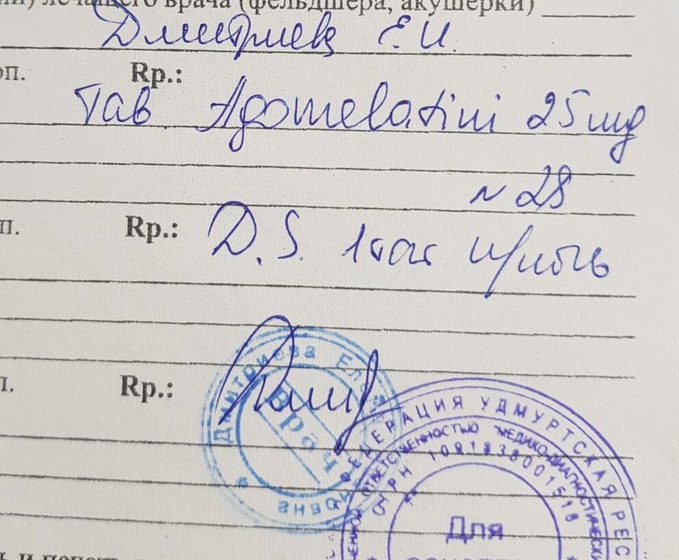 лечащего врача (фельдшера, акушерки)
Дмитриева Е.И.
Rp.:
Таб Agomelatini 25 mg
N 28
Rp.: D.S. 1 таб н/ночь
Rp.:
Дмитриева Еле
Врач
вна
ФЕДЕРАЦИЯ УДМУРТСКАЯ РЕС
ОТВЕТСТВЕННОСТЬЮ "МЕДИКО-ДИАГНОСТИЧЕСКИ
ОГРН 1091838001518
Для